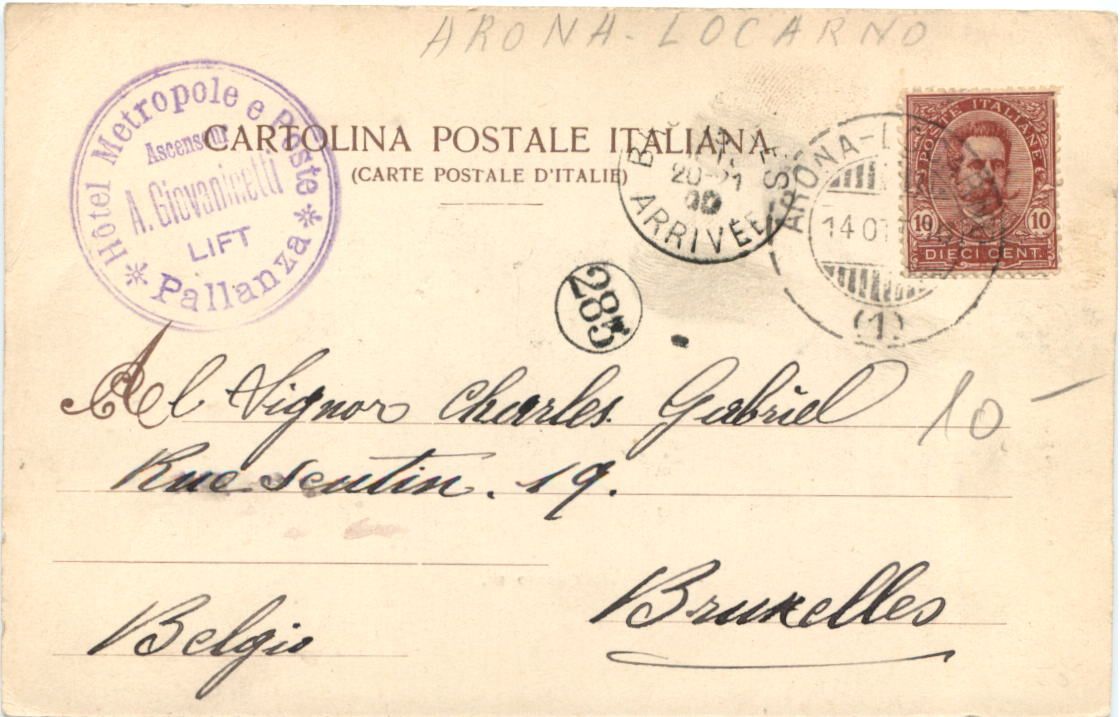 ARONA-LOCARNO
Hôtel Metropole e Poste
Ascenseur
A. Giovaninetti
LIFT
* Pallanza *
CARTOLINA POSTALE ITALIANA
(CARTE POSTALE D'ITALIE)
20-21
00
ARRIVÉE
ARONA-L
14 OT
(1)
POSTE ITALIANE
10 10
DIECI CENT.
285
Al Signor Charles Gabriel
10-
Rue Seutin. 19.
Bruxelles
Belgio